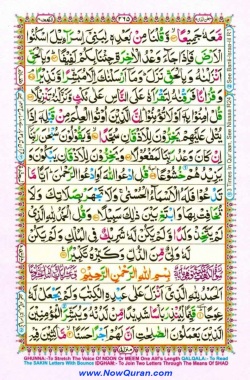 مَّعَهٗ جَمِيْعًا وَّقُلْنَا مِنْۢ بَعْدِهٖ لِبَنِيْۤ اِسْرَآءِيْلَ اسْكُنُوا
الْاَرْضَ فَاِذَا جَآءَ وَعْدُ الْاٰخِرَةِ جِئْنَا بِكُمْ لَفِيْفًا وَبِالْحَقِّ
اَنْزَلْنٰهُ وَبِالْحَقِّ نَزَلَ وَمَآ اَرْسَلْنٰكَ اِلَّا مُبَشِّرًا وَّنَذِيْرًا
وَقُرْاٰنًا فَرَقْنٰهُ لِتَقْرَاَهٗ عَلَى النَّاسِ عَلٰى مُكْثٍ وَّنَزَّلْنٰهُ تَنْزِيْلًا
قُلْ اٰمِنُوْا بِهٖٓ اَوْ لَا تُؤْمِنُوْا اِنَّ الَّذِيْنَ اُوْتُوا الْعِلْمَ مِنْ قَبْلِهٖٓ اِذَا
يُتْلٰى عَلَيْهِمْ يَخِرُّوْنَ لِلْاَذْقَانِ سُجَّدًا وَّيَقُوْلُوْنَ سُبْحٰنَ رَبِّنَآ
اِنْ كَانَ وَعْدُ رَبِّنَا لَمَفْعُوْلًا وَيَخِرُّوْنَ لِلْاَذْقَانِ يَبْكُوْنَ وَ
يَزِيْدُهُمْ خُشُوْعًا قُلِ ادْعُوا اللّٰهَ اَوِ ادْعُوا الرَّحْمٰنَ اَيًّا مَّا
تَدْعُوْا فَلَهُ الْاَسْمَآءُ الْحُسْنٰى وَلَا تَجْهَرْ بِصَلَاتِكَ وَلَا
تُخَافِتْ بِهَا وَابْتَغِ بَيْنَ ذٰلِكَ سَبِيْلًا وَقُلِ الْحَمْدُ لِلّٰهِ الَّذِيْ
لَمْ يَتَّخِذْ وَلَدًا وَّلَمْ يَكُنْ لَّهٗ شَرِيْكٌ فِي الْمُلْكِ وَلَمْ يَكُنْ
لَّهٗ وَلِيٌّ مِّنَ الذُّلِّ وَكَبِّرْهُ تَكْبِيْرًا
بِسْمِ اللّٰهِ الرَّحْمٰنِ الرَّحِيْمِ
اَلْحَمْدُ لِلّٰهِ الَّذِيْٓ اَنْزَلَ عَلٰى عَبْدِهِ الْكِتٰبَ وَلَمْ يَجْعَلْ لَّهٗ
GHUNNA:-To Stretch The Voice Of NOON Or MEEM One Alif's Length QALQALA:- To Read
The SAKIN Letters With Bounce IDGHAM:- To Join Two Letters Through The Means Of SHAD
www.NowQuran.com